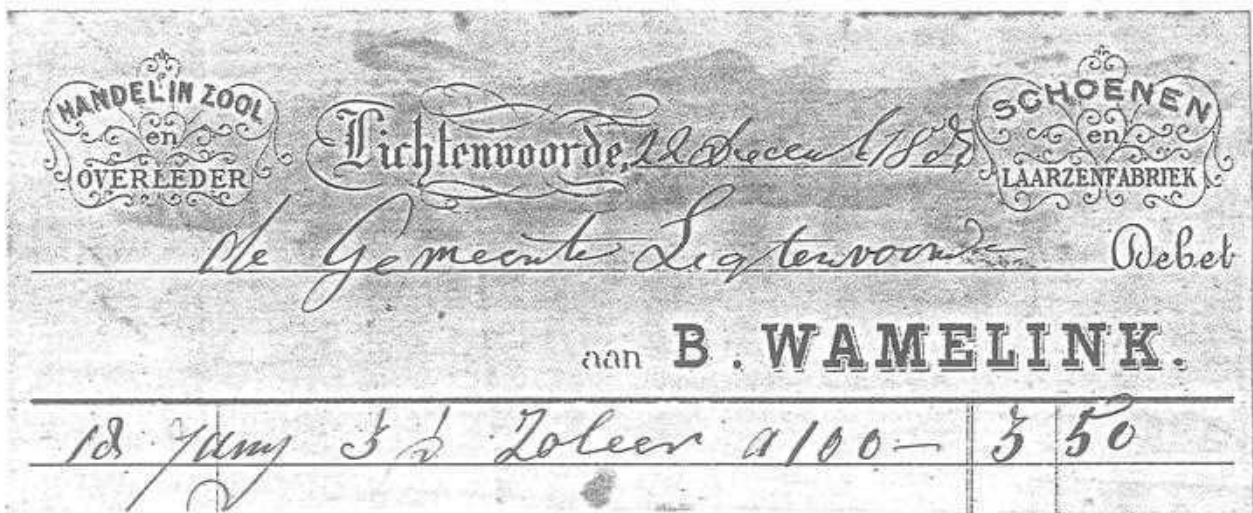 HANDEL IN ZOOL
en
OVERLEDER
Lichtenvoorde, 22 Decemb 188
SCHOENEN
en
LAARZENFABRIEK
de Gemeente Ligtenvoorde Debet
aan B. WAMELINK.
18 Jany 3 Zoleer a 100 - 3 50